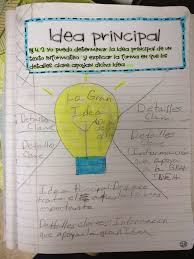 Idea principal
4.2 Yo puedo determinar la idea principal de un
texto informativo y explicar la forma en que los
detalles clave apoyan dicha idea
La Gran
Idea
Detalles
Clave
Detalles
Clave
Detalles
Clave
Información
que apoya
la GRAN
IDEA
Idea Principal
trata el
importante
Detalles claves: Informacion
que apoya la gran idea